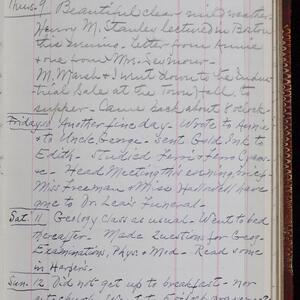 Thurs. 9 Beautiful clear mild weather.
Henry M. Stanley lectured in Boston
this evening. Letter from Annie
& one from Mrs. Seymour.
M. Marsh & I went down to the Indus-
trial Sale at the Town Hall, to
supper. Came back about 8 o'clock.
Friday 10 Another fine day - Wrote to Annie
& to Uncle George. Sent Gold Ink to
Edith. Studied Ferri & Ferro Cyan-
ide. Head Meeting this evening in
Miss Freeman & Miss Hallowell have
gone to Dr. Lea's Funeral.
Sat. 11 Geology class as usual. Went to bed
thereafter. Made Questions for Geog.
Examinations, Phys. & Mod - Read some
in Harpers.
Sun. 12 Did not get up to breakfast - nor